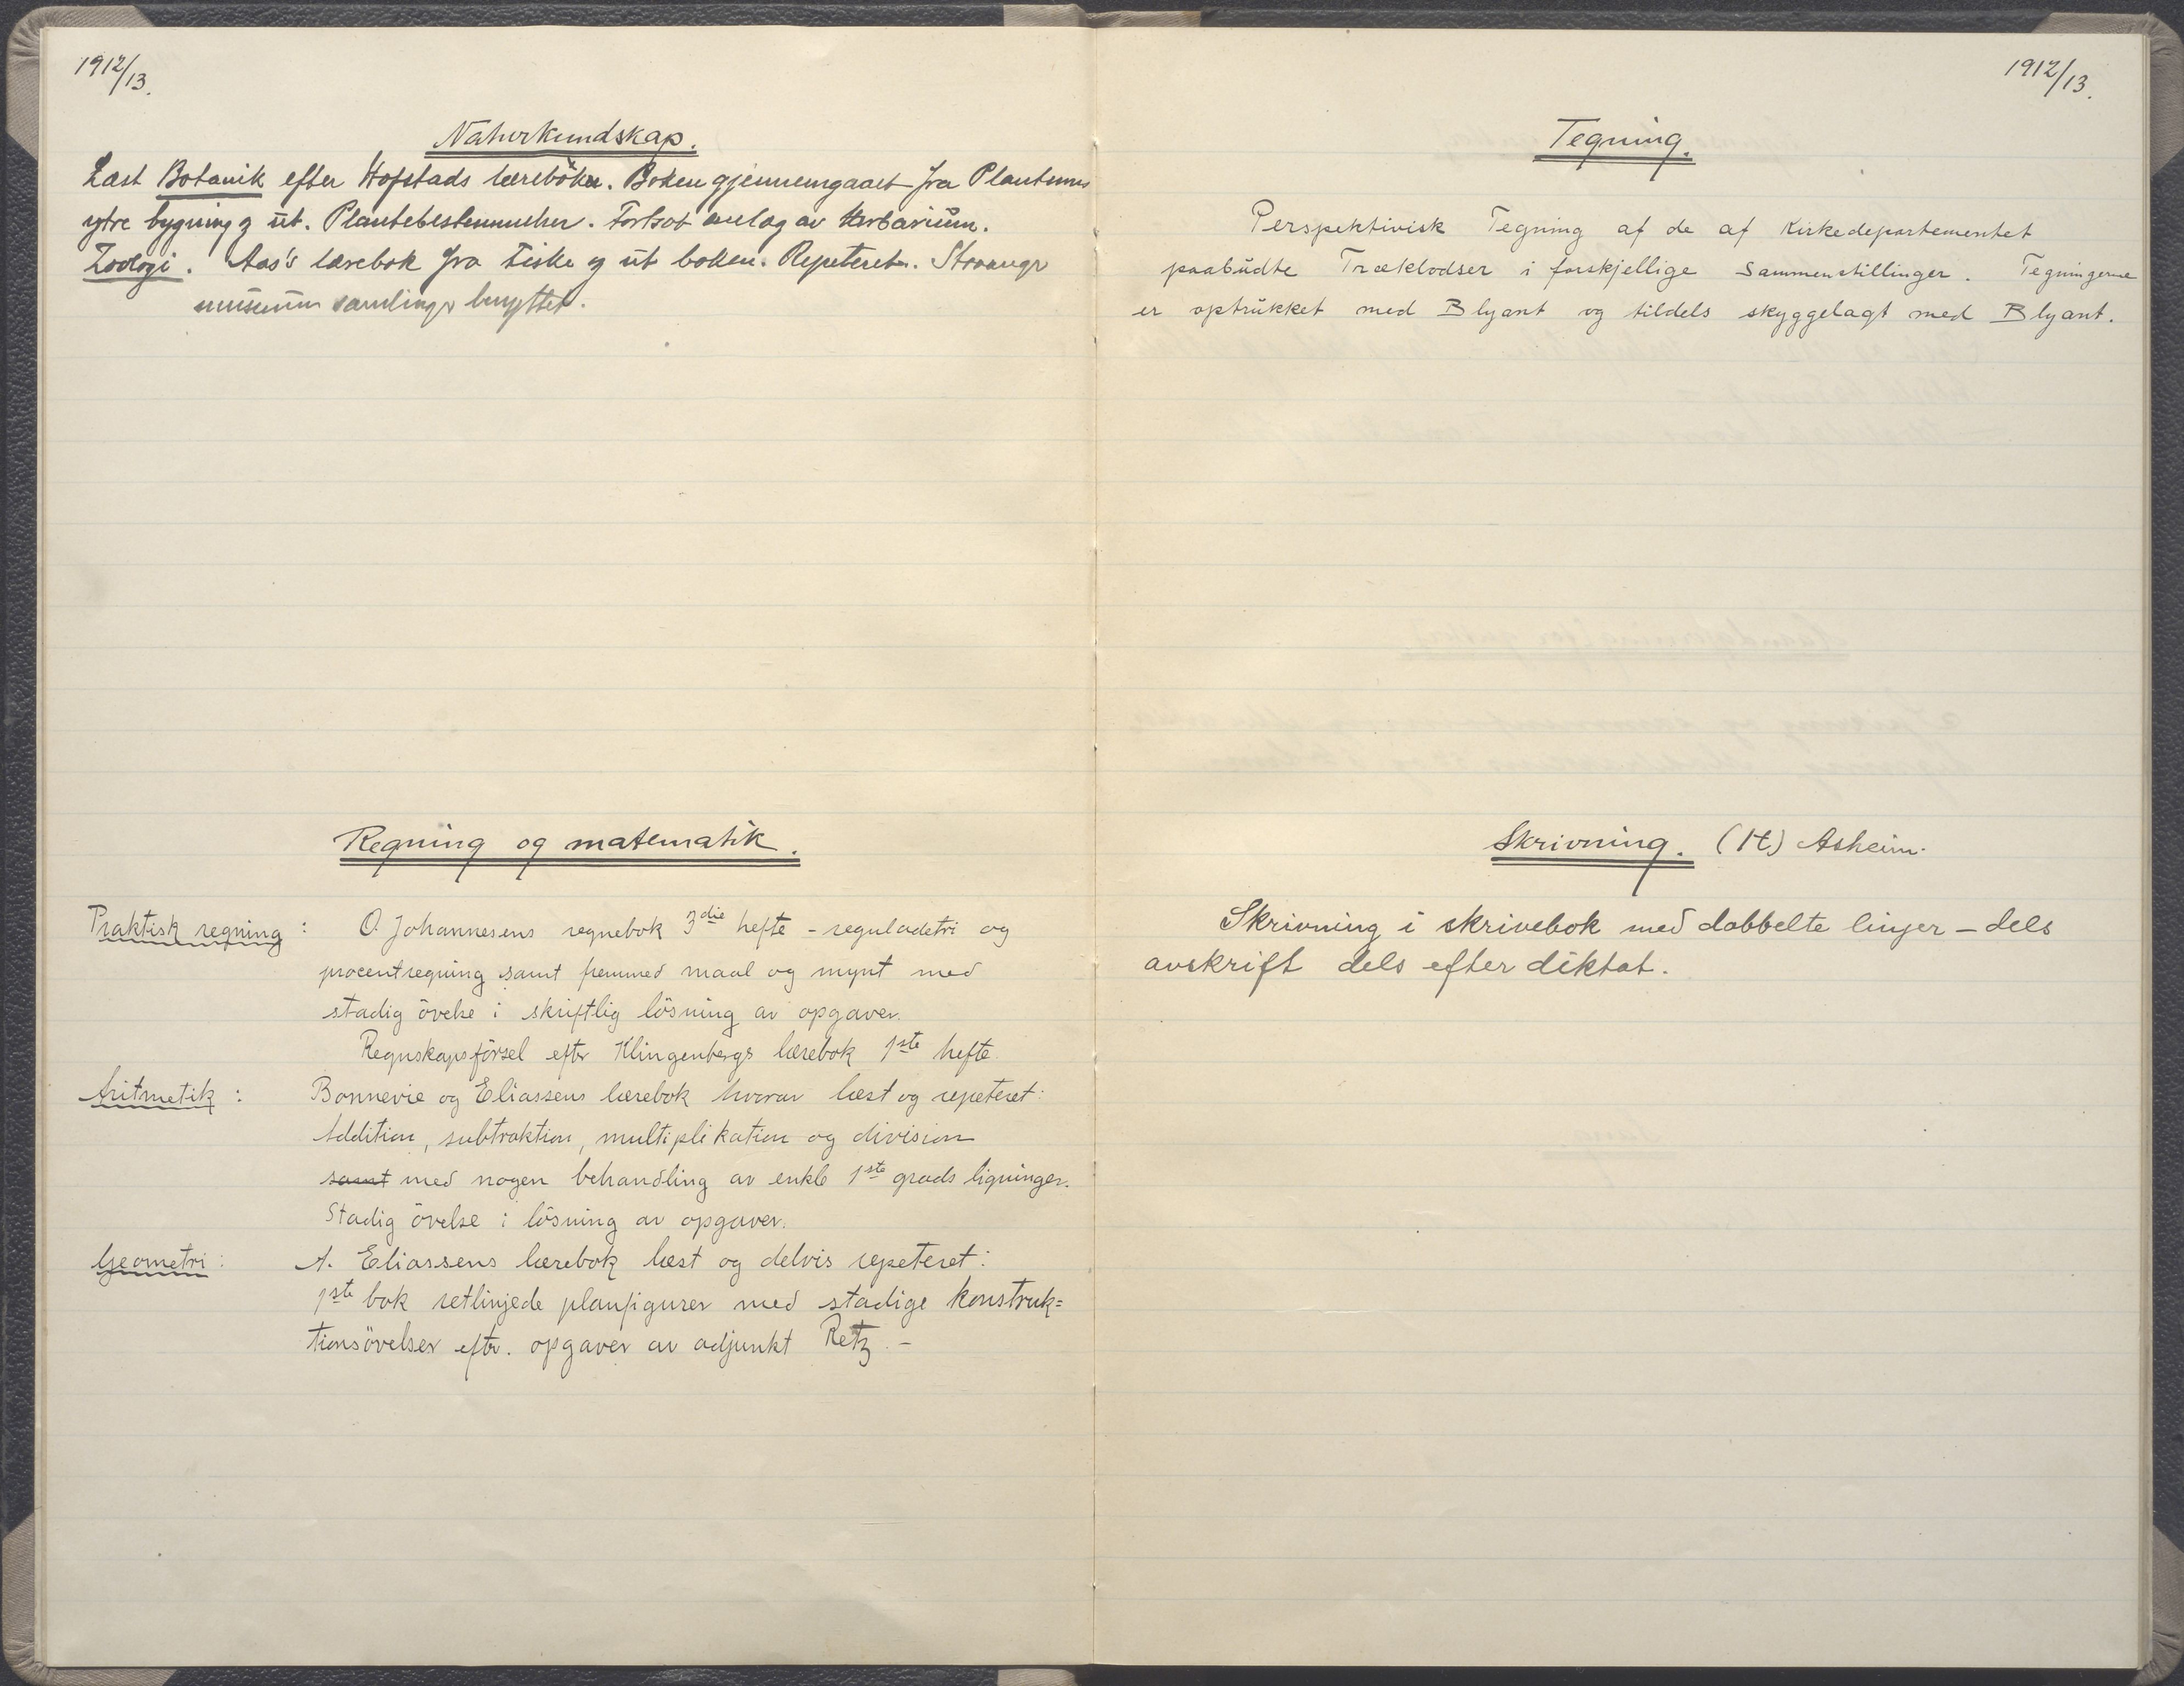 1912/13.
Naturkundskap.
Læst Botanik efter Hofstads læreböker. Boken gjennemgaaet fra Plantenes
ytre bygning og ut. Plantebestemmelser. Fortsat anlæg av Herbarium.
Zoologi. Aas's lærebok fra Fiske og ut boken. Repeteret.
museum samlinger benyttet.
Regning og matematik.
Praktisk regning: O. Johannesens regnebok 3die hefte - reguladetri og
procentregning samt fremmed maal og mynt med
stadig övelse i skriftlig lösning av opgaver.
Regnskapsförsel efter Klingenbergs lærebok 1ste hefte
Aritmetik: Bonnevie og Eliassens lærebok hvorav læst og repeteret:
Addition, subtraktion, multiplikation og division
samt med nogen behandling av enkle 1ste grads ligninger.
Stadig övelse i lösning av opgaver.
Geometri: A. Eliassens lærebok læst og delvis repeteret:
1ste bok retlinjede planfigurer med stadige konstruk=
tionsövelser eftr. opgaver av adjunkt Retz. -
1912/13.
Tegning.
Perspektivisk Tegning af de af Kirkedepartementet
paabudte Træklodser i forskjellige Sammenstillinger. Tegningerne
er optrukket med Blyant og tildels skyggelagt med Blyant.
Skrivning. (H) Asheim.
Skrivning i skrivebok med dobbelte linjer - dels
avskrift dels efter diktat.